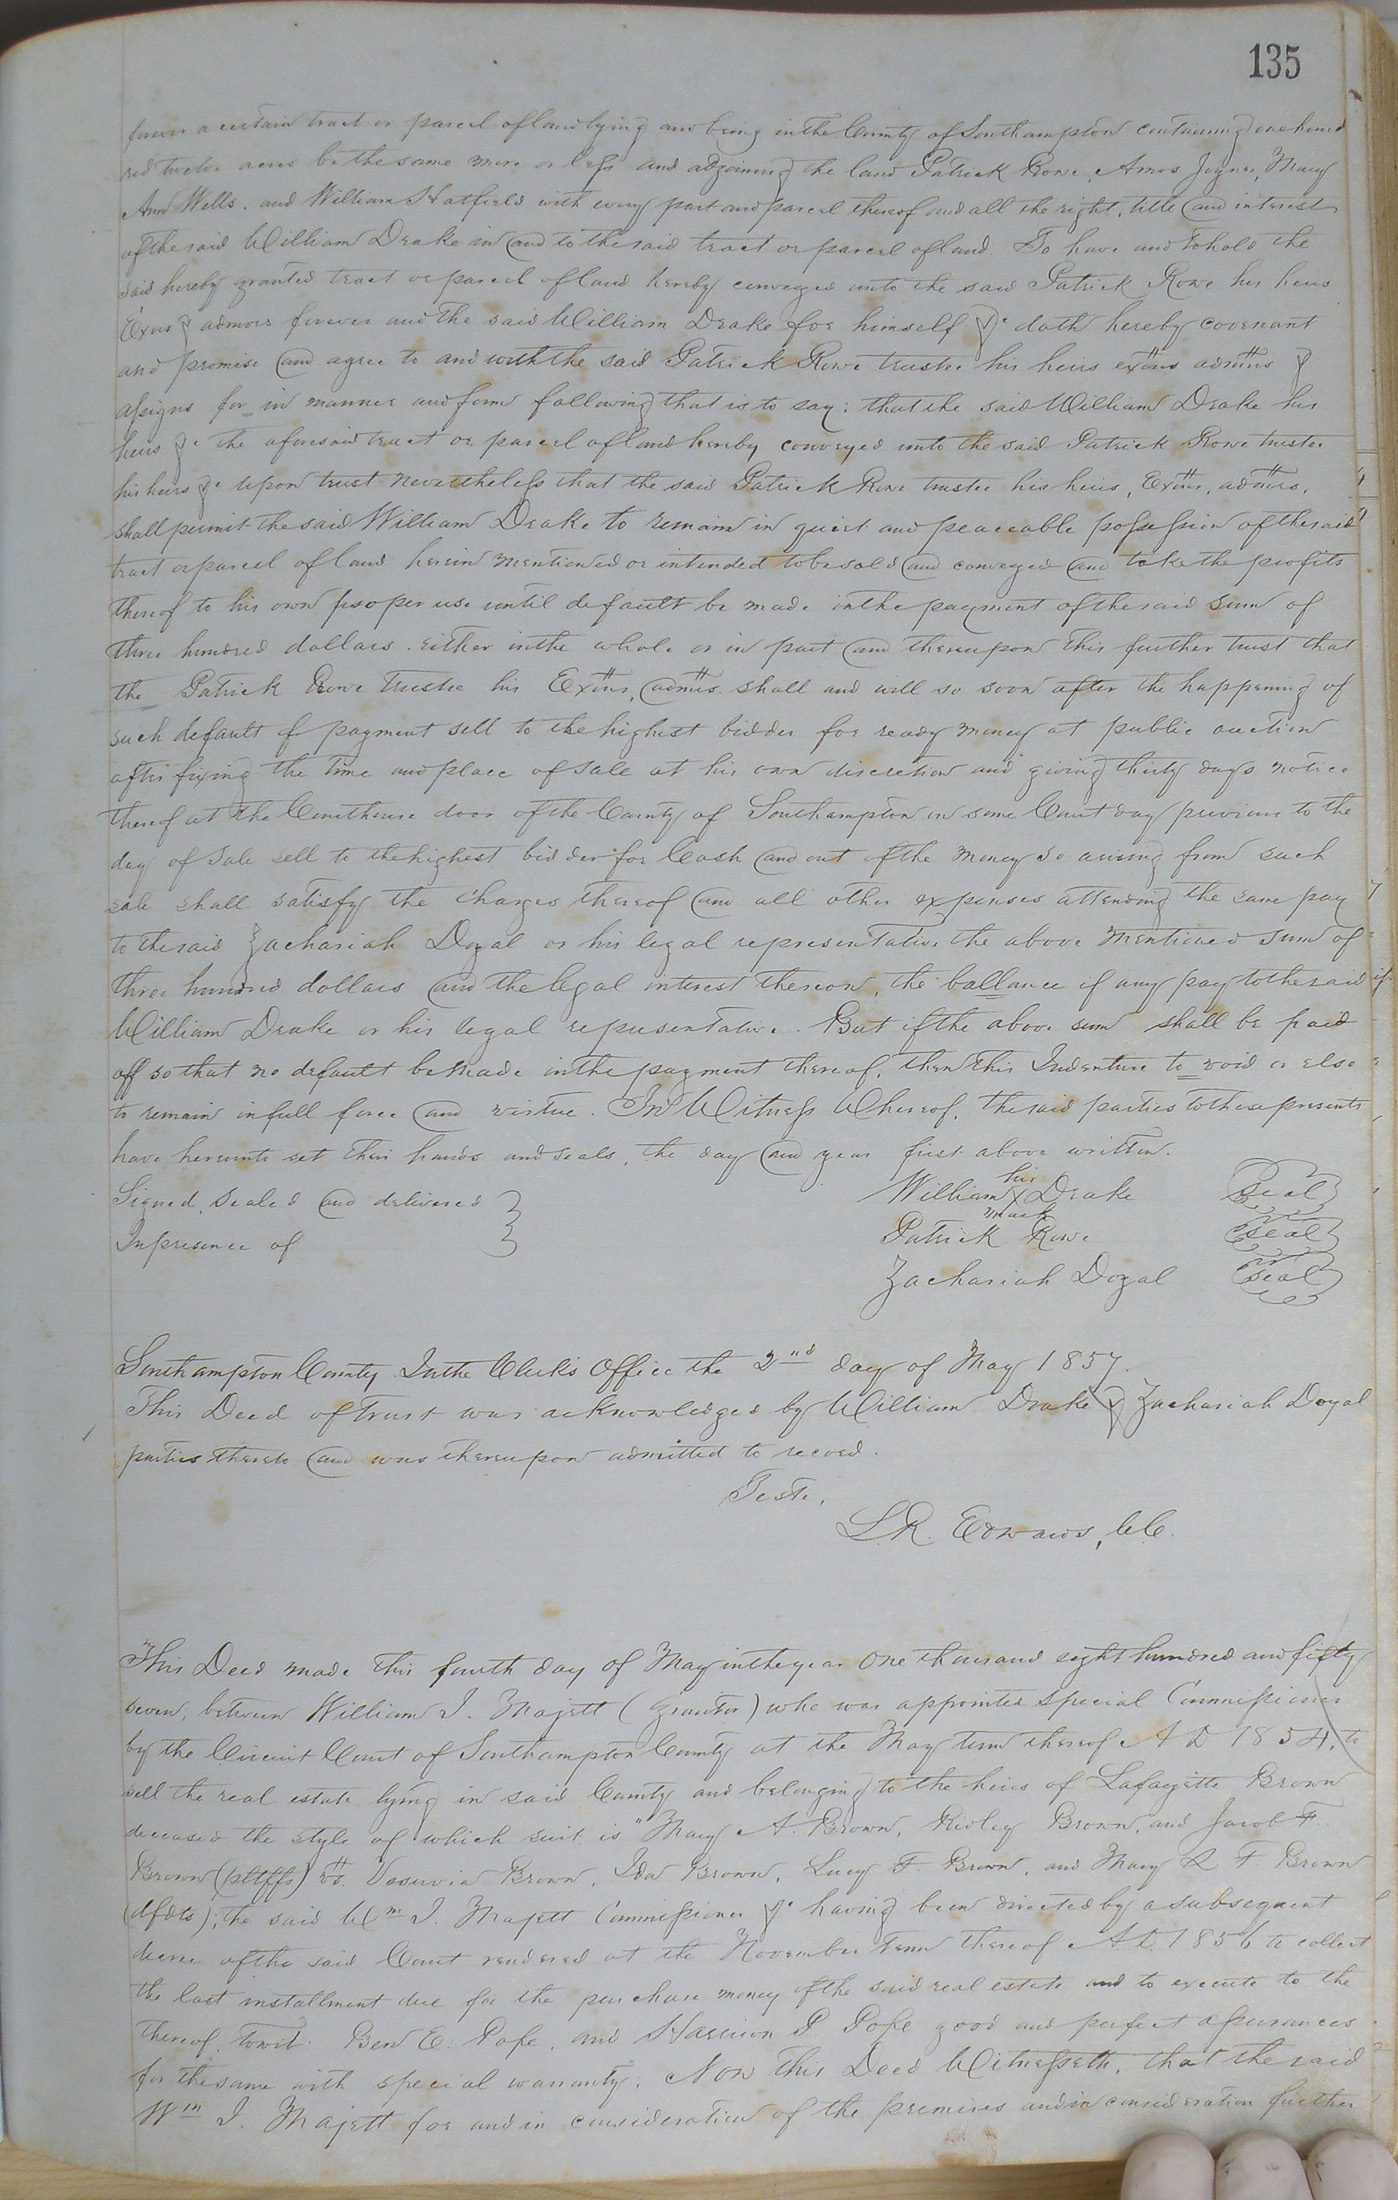 135
forever a certain tract or parcel of land lying and being in the County of Southampton containing one hund
red twelve acres be the same more or less and adjoining the land Patrick Rowe, Amos Joyner, Mary
Ann Wells, and William Hatfield with every part and parcel thereof and all the right, title and interest
of the said William Drake in and to the said tract or parcel of land. To have and to hold the
said hereby granted tract or parcel of land hereby conveyed unto the said Patrick Rowe his heirs
Exors & admors forever and the said William Drake for himself &c doth hereby covenant
and promise and agree to and with the said Patrick Rowe trustee his heirs extrs admtrs &
assigns for in manner and form following that is to say: that the said William Drake his
heirs &c the aforesaid tract or parcel of land hereby conveyed unto the said Patrick Rowe trustee
his heirs &c upon trust nevertheless that the said Patrick Rowe trustee his heirs, Extrs, admtrs,
shall permit the said William Drake to remain in quiet and peaceable possession of the said
tract or parcel of land herein mentioned or intended to be sold and conveyed and take the profits
thereof to his own proper use until default be made in the payment of the said sum of
three hundred dollars. either in the whole or in part and thereupon this further trust that
the Patrick Rowe Trustee his Extrs, admtrs shall and will so soon after the happening of
such default of payment sell to the highest bidder for ready money at public auction
after fixing the time and place of sale at his own discretion and giving thirty days notice
thereof at the Courthouse door of the County of Southampton on some Court day previous to the
day of sale sell to the highest bidder for Cash and out of the money so arising from such
sale shall satisfy the charges thereof and all other expenses attending the same pay
to the said Zachariah Doyal or his legal representative the above mentioned sum of
three hundred dollars and the legal interest thereon, the ballance if any pay to the said
William Drake or his legal representative. But if the above sum shall be paid
off so that no default be made in the payment thereof, then this Indenture to void or else
to remain in full force and virtue. In Witness Whereof, the said parties to these presents
have hereunto set their hands and seals, the day and year first above written.
Signed, sealed and delivered
In presence of
his
William X Drake seal
mark
Patrick Rowe seal
Zachariah Doyal seal
Southampton County In the Clerk's Office the 2nd day of May 1857.
This Deed of Trust was acknowledged by William Drake & Zachariah Doyal
parties thereto and was thereupon admitted to record.
Teste,
L.R. Edwards, C.C.
This Deed made this fourth day of May in the year One thousand eight hundred and fifty
seven, between William J. Majett (Grantor) who was appointed special Commissioner
by the Circuit Court of Southampton County at the May term thereof A D 1854, to
sell the real estate lying in said County and belonging to the heirs of Lafayette Brown
deceased the style of which suit is "Mary A. Brown, Ridley Brown, and Jacob F.
Brown (pltffs) vs. Vesuvia Brown, Ida Brown, Lucy F Brown, and Mary L F Brown
(dfdts); the said Wm J. Majett Commissioner &c having been directed by a subsequent
decree of the said Court rendered at the November Term thereof A D 1856 to collect
the last installment due for the purchase money of the said real estate and to execute to the
thereof, towit: Ben E. Pope, and Harrison P. Pope good and perfect assurances
for the same with special warranty. Now this Deed Witnesseth, that the said
Wm J. Majett for and in consideration of the premises and in consideration further